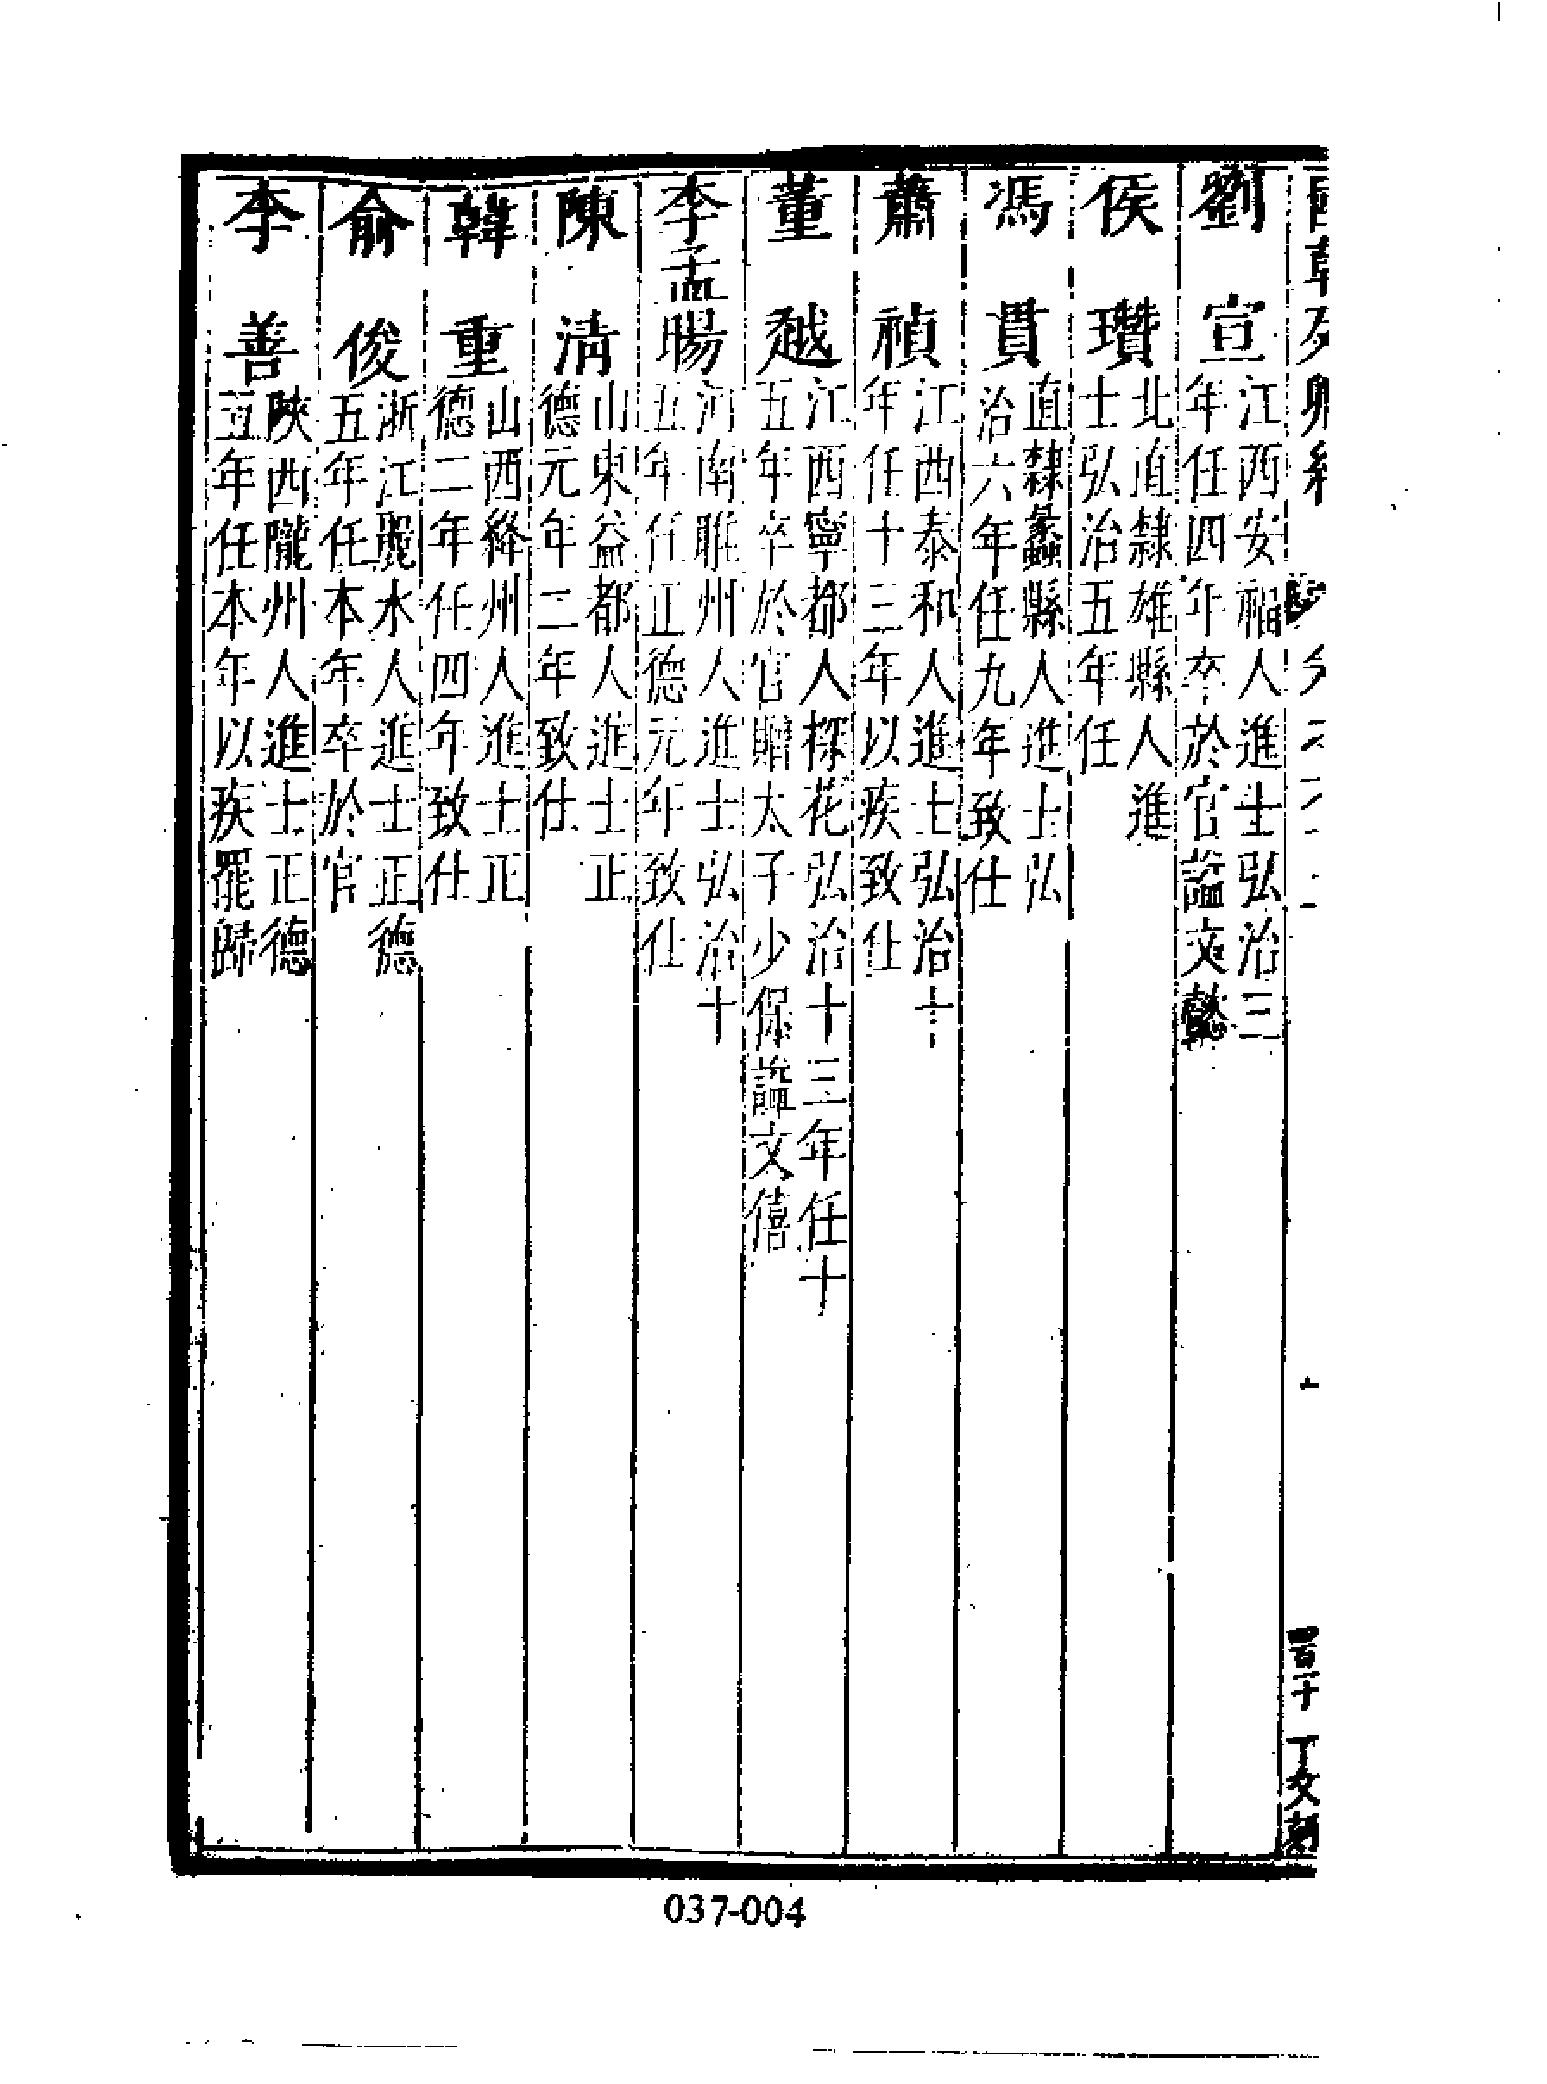 劉宣
江西安福人進士弘治三
年任四年卒於官諡文懿
侯瓚
北直隸雄縣人進
士弘治五年任
馮貫
直隸蠡縣人進士弘
治六年任九年致仕
蕭禎
江西泰和人進士弘治十
年任十三年以疾致仕
董越
江西寧都人探花弘治十三年任十
五年卒於官贈太子少保諡文僖
李孟暘
河南睢州人進士弘治十
五年任正德元年致仕
陳清
山東益都人進士正
德元年二年致仕
韓重
山西絳州人進士正
德二年任四年致仕
俞俊
浙江麗水人進士正德
五年任本年卒於官
李善
陝西隴州人進士正德
五年任本年以疾罷歸
037-004